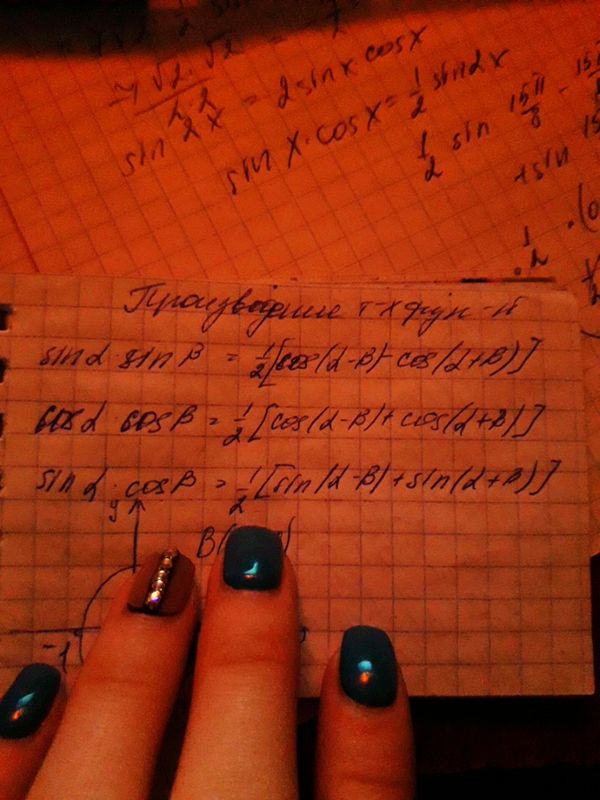 sin 2x = 2 sin x cos x
sin x · cos x = 1/2 sin 2x
1/2 sin 15π/8
+ sin
Произведение т-х функ-й
sin α · sin β = 1/2 [cos(α-β) - cos(α+β)]
cos α · cos β = 1/2 [cos(α-β) + cos(α+β)]
sin α · cos β = 1/2 [sin(α-β) + sin(α+β)]
y
B(
-1